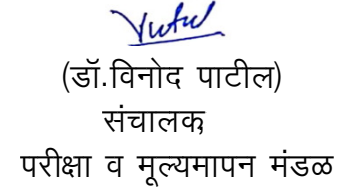 (डॉ.विनोद पाटील)
संचालक,
परीक्षा व मूल्यमापन मंडळ